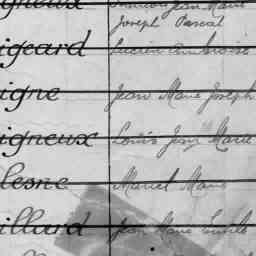 igneux Francois Jean Marie
Joseph Pascal
igeard Lucien Ambroise
igne Jean Marie Joseph
igneux Louis Jean Marie
lesne Marcel Marie
illard Jean Marie Emile